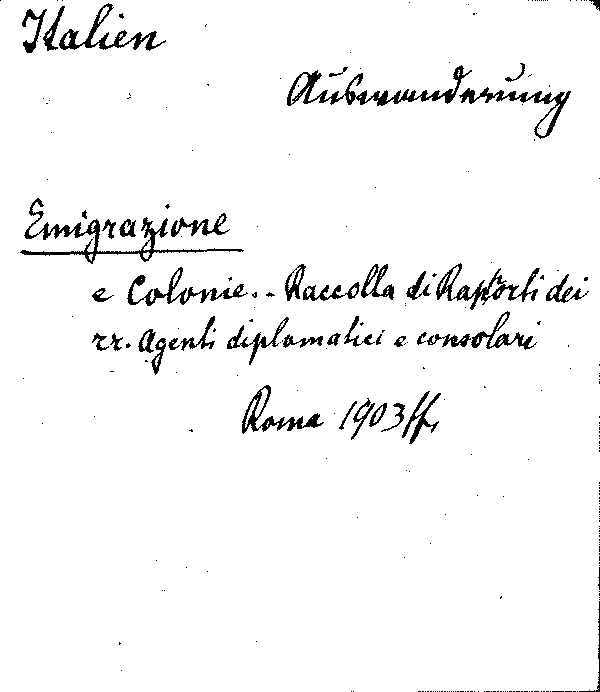 Italien
Auswanderung
Emigrazione
e Colonie. - Raccolta di Rapporti dei
rr. Agenti diplomatici e consolari
Roma 1903 ff.